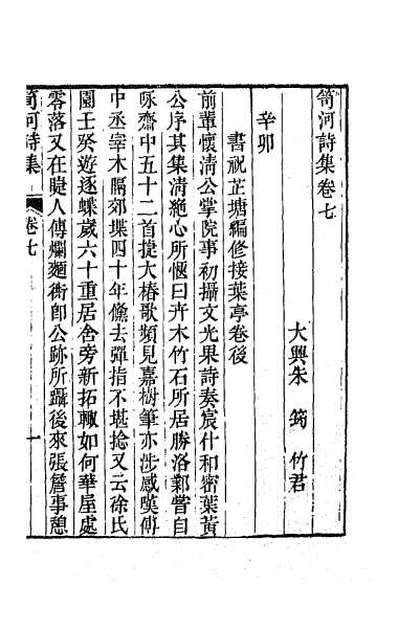 笥河詩集卷七
大興朱筠竹君
辛卯
書祝芷塘編修接葉亭卷後
前輩懷淸公掌院事初攝文光果詩奏宸什和密葉黃
公序其集淸絶心所愜曰卉木竹石所居勝洛鄴嘗自
咏齋中五十二首捷大椿歌頻見嘉樹筆亦涉感嘆傳
中丞宰木隔郊堞四十年儵去彈指不堪捻又云徐氏
園壬癸遊逐蝶歲六十重居舍旁新拓輙如何華屋處
零落又在睫人傳爛麵衚卽公跡所躡後來張詹事憩
笥河詩集
卷七
一